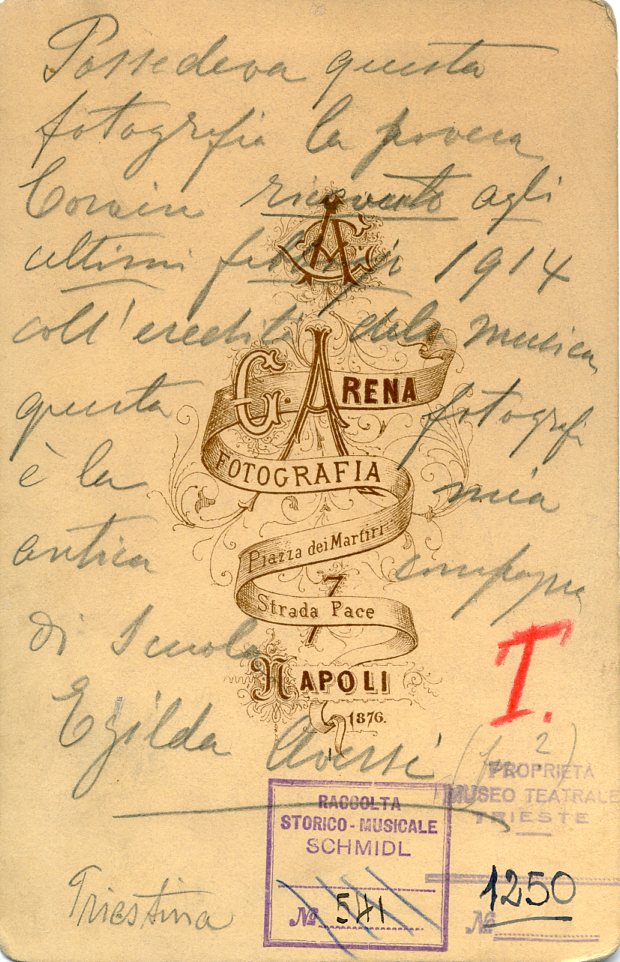 Possedeva questa
fotografia la povera
ricevuto agli
ultimi febbraio 1914
coll'eredità della musica
questa fotografia
è la mia
antica compagna
di scuola
Egilda
CA
G. ARENA
FOTOGRAFIA
Piazza dei Martiri
7
Strada Pace
7
NAPOLI
1876.
T.
2
PROPRIETÀ
MUSEO TEATRALE
TRIESTE
RACCOLTA
STORICO-MUSICALE
SCHMIDL
№ 541
1250
№
Triestina